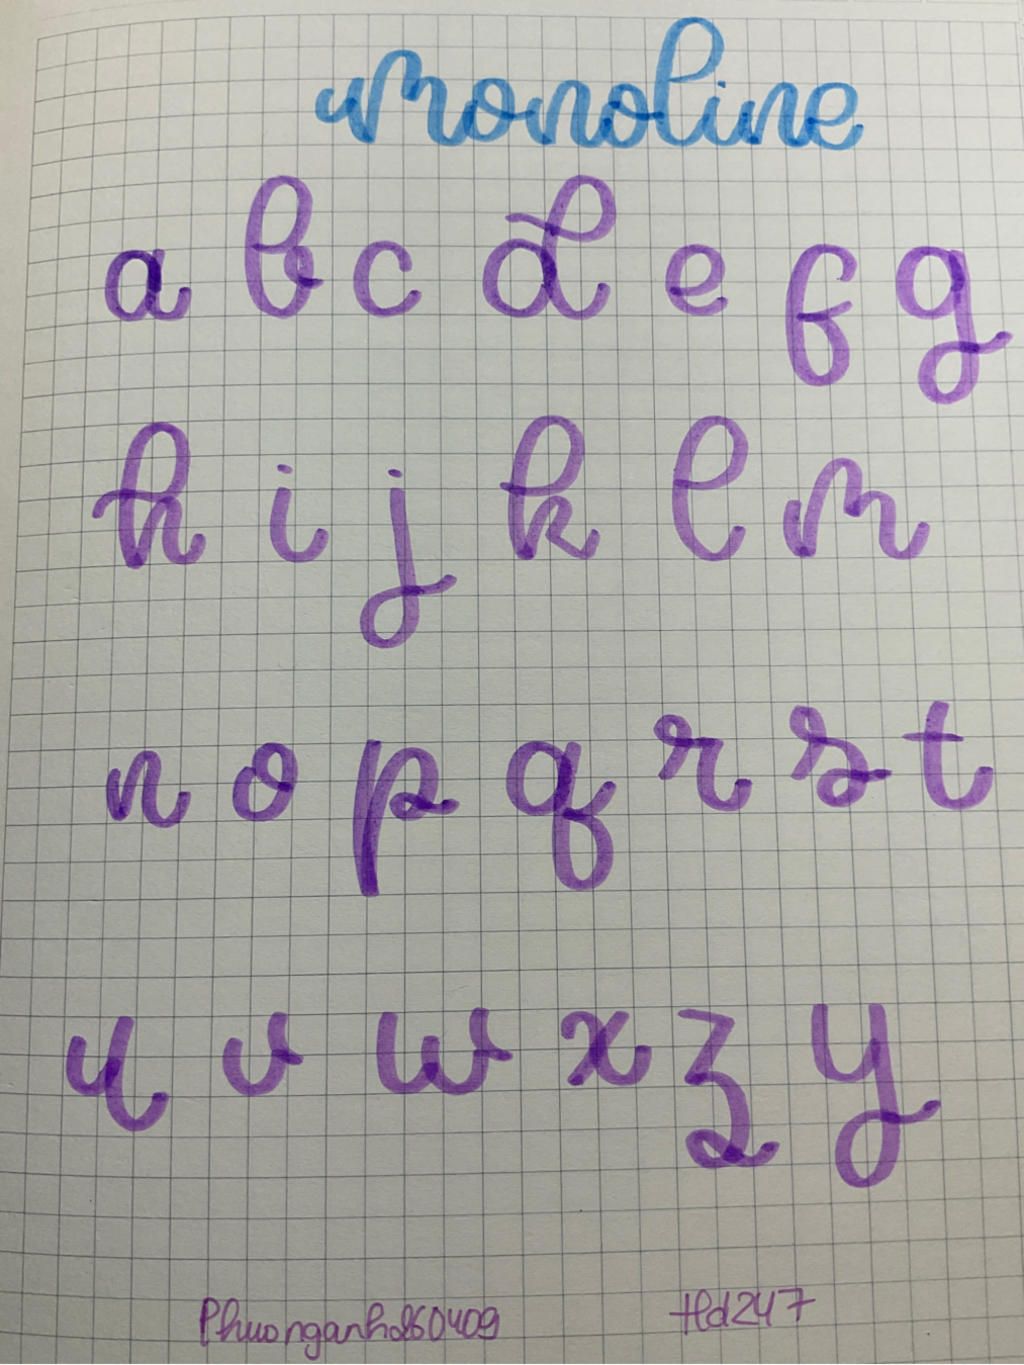 Monoline
a b c d e f g
h i j k l m
n o p q r s t
u v w x z y
Phuonganh260409 Hd247